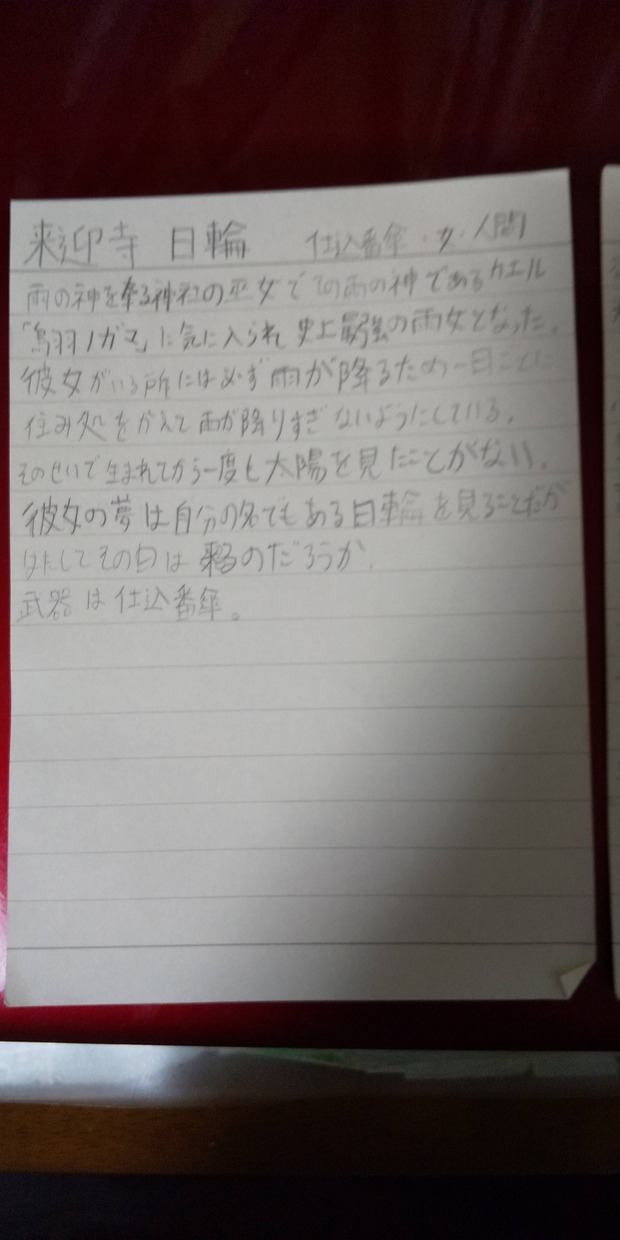 来迎寺 日輪 仕込番傘・女・人間
雨の神を奉る神社の巫女でその雨の神であるカエル
「鳥羽ノガマ」に気に入られ史上最強の雨女となった。
彼女がいる所には必ず雨が降るため一日ごとに
住み処をかえて雨が降りすぎないようにしている。
そのせいで生まれてから一度も太陽を見たことがない。
彼女の夢は自分の名でもある日輪を見ることだが
はたしてその日は来るのだろうか。
武器は仕込番傘。